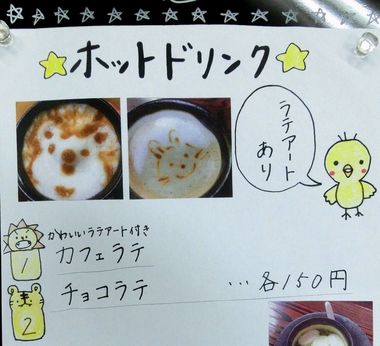 ホットドリンク
ラテアート
あり
かわいいラテアート付き
1 カフェラテ
2 チョコラテ …各150円